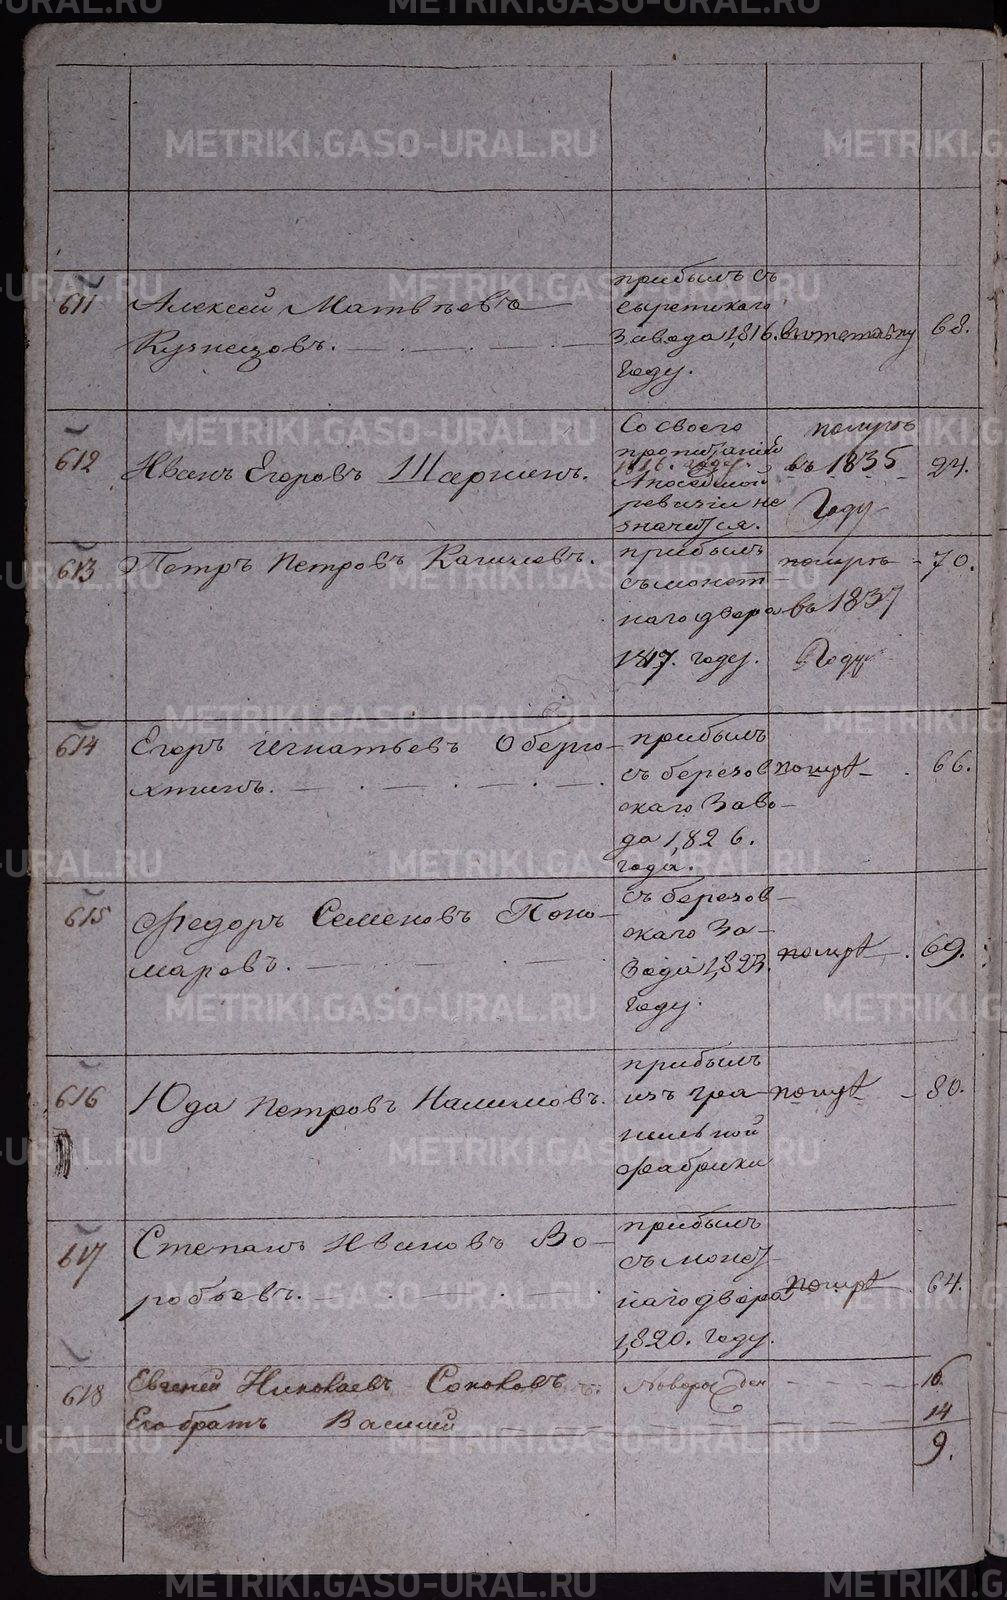 611
Алексей Матвѣевъ
Кузнецовъ.
прибылъ съ
сыретскаго
Завода 1,816.
году.
въ отставку
68.
612
Иванъ Егоровъ Шаршинъ.
Со своего
пропитанiя
1816. году.
А по седьмой
ревизiи не
значится.
помиръ
въ 1835
Году
24.
613
Петръ Петровъ Кашилевъ.
прибылъ
съ монет-
наго двора
1817. году.
помиръ
въ 1837
Году
70.
614
Егоръ Игнатьевъ Оберю-
хтинъ.
прибылъ
съ березов
скаго Заво-
да 1,826.
года.
помрѣ
66.
615
Федоръ Семеновъ Поно-
маревъ.
съ березов-
скаго За-
вода 1,823.
году.
помрѣ
69.
616
Юда Петровъ Налимовъ.
прибылъ
изъ гра-
нильной
фабрики
помрѣ
80.
617
Степанъ Ивановъ Во-
робьевъ.
прибылъ
съ монет
наго двора
1,820. году.
помрѣ
64.
618
Евгений Николаевъ Соколовъ
Новорожден
16
Его братъ Василий
14
9.
METRIKI.GASO-URAL.RU